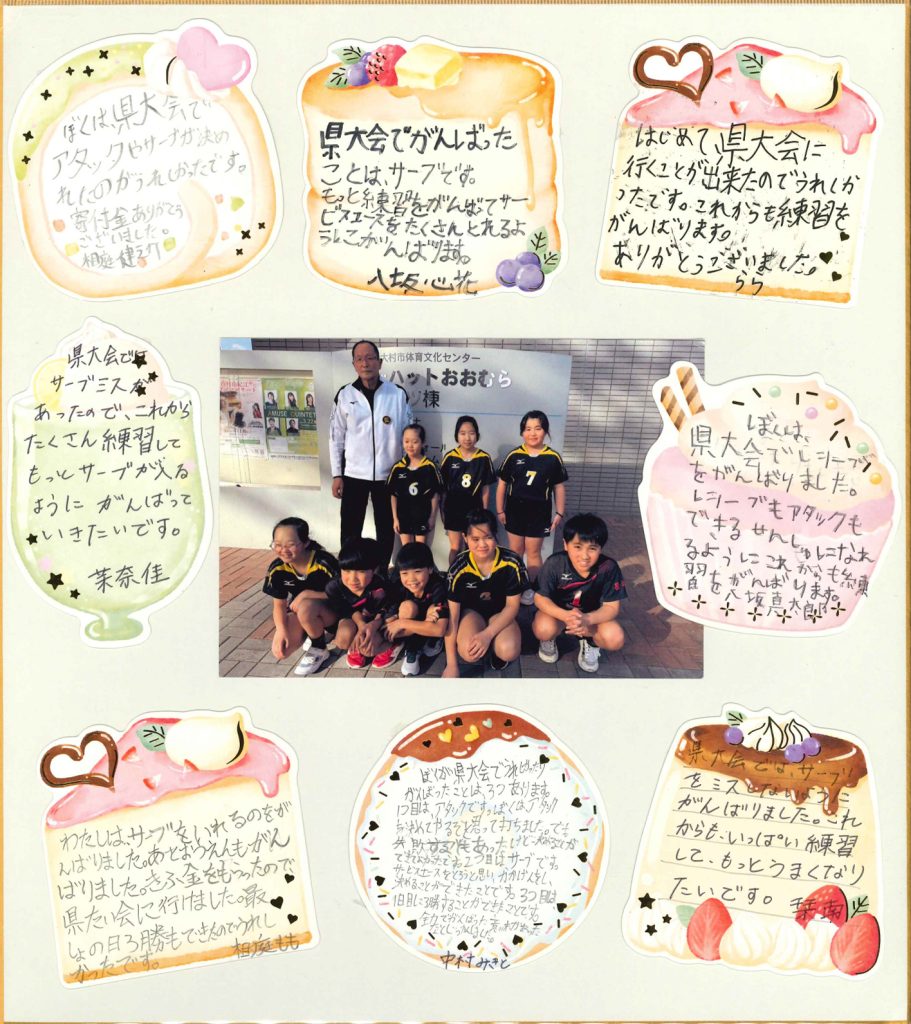 ぼくは、県大会で
アタックやサーブが決め
れたのがうれしかったです。
寄付金ありがとう
ございました。
相庭
県大会でがんばった
ことは、サーブです。
もっと練習をがんばってサー
ビスエースをたくさんとれるよ
うにこれ
がんばります。
八坂心花
はじめて、県大会に
行くことが出来たのでうれしか
ったです。これからも練習を
がんばります。
ありがとうございました。
らら
県大会では
サーブミスが
あったので、これから
たくさん練習して
もっとサーブが入る
ように がんばって
いきたいです。
茉奈佳
大村市体育文化センター
ハットおおむら
ジ棟
AMUSE QUINTET
6
8
7
ぼくは、
県大会でレシーブ
をがんばりました。
レシーブもアタックも
できるせんしゅになれ
るようにこれからも練
習をがんばります。
八坂真太郎
わたしは、サーブをいれるのをが
んばりました。あとおうえんもがん
ばりました。きふ金をもらったので
県たい会に行けました。最
しょの日3勝もできたのでうれし
かったです。
相庭もも
ぼくが県大会でうれしかったり
がんばったことは3つあります。
1つ目は、アタックです。ぼくはアタック
を決めてやるぞと思って打ちました。でも
失敗するでもあったけど
できてよかったです。2つ目はサーブです。
サービスエースをとろうと思い、
決めることができたことです。3つ目は
1日目に3勝することができたことです。
全力で
中村みきと
県大会では、サーブ
をミスしないように
がんばりました。これ
からも、いっぱい練習
して、もっとうまくなり
たいです。
栞南